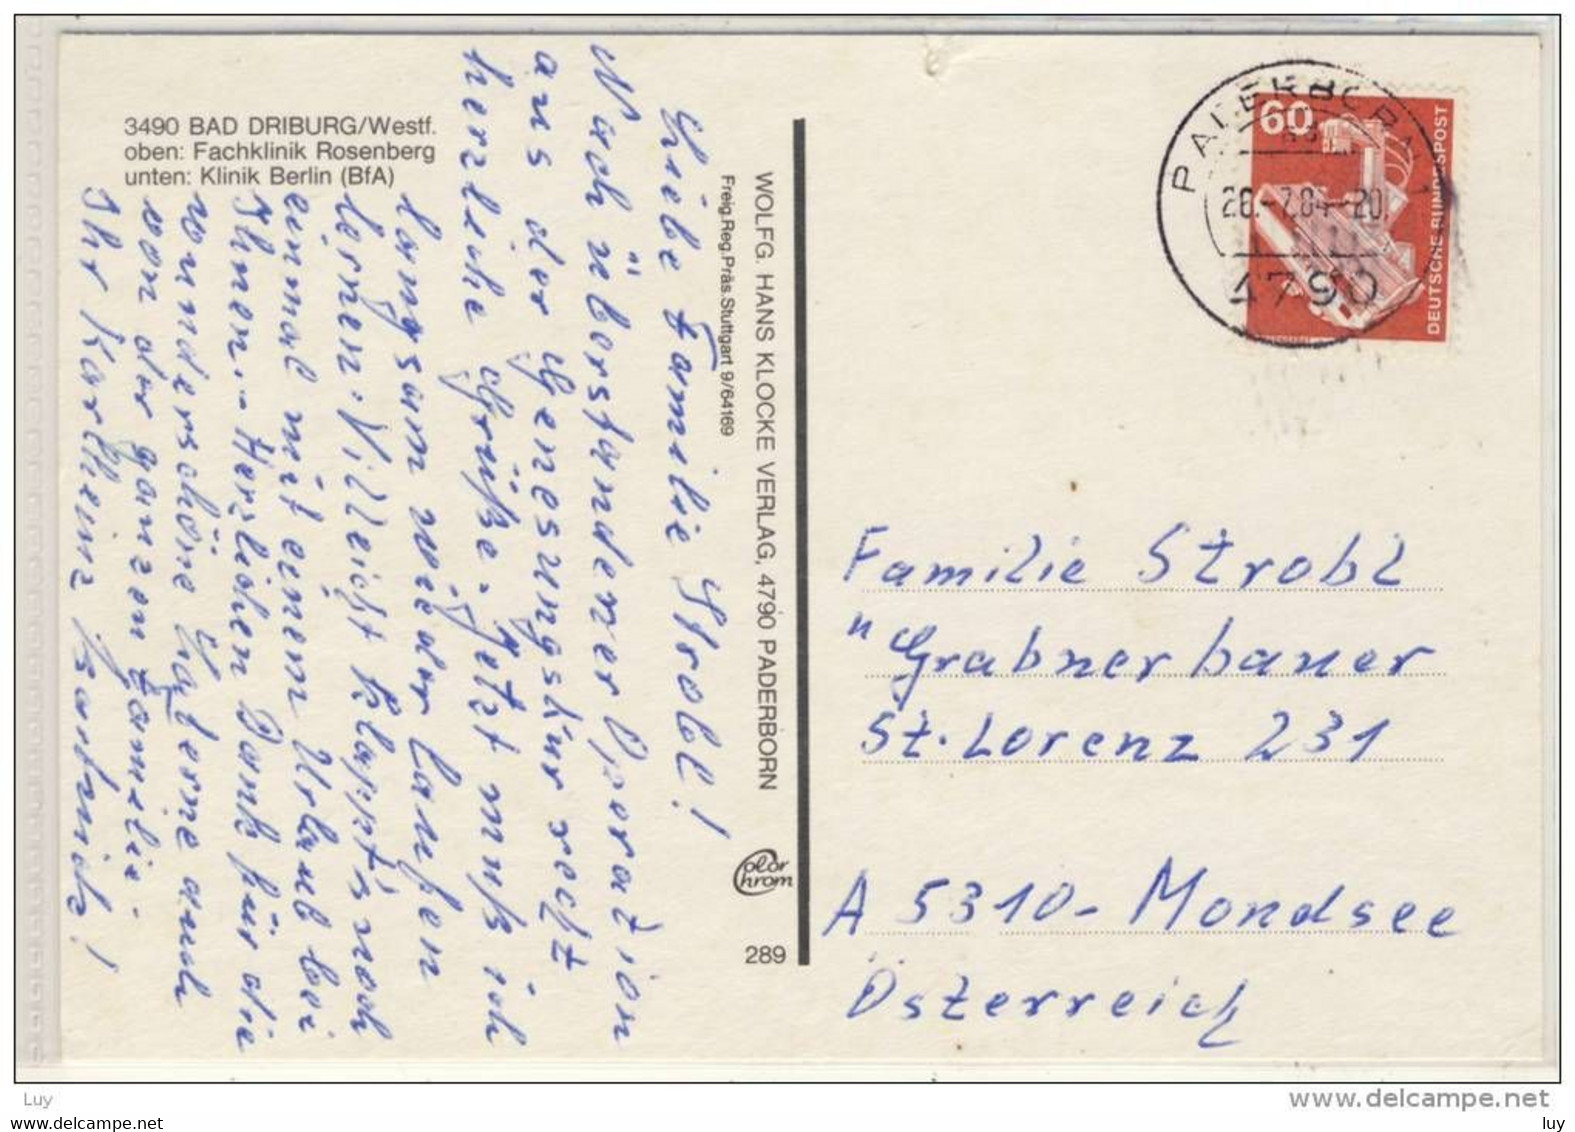 3490 BAD DRIBURG/Westf.
oben: Fachklinik Rosenberg
unten: Klinik Berlin (BfA)
Liebe Familie Strobl!
Nach überstandener Operation
aus der Genesungskur recht
herzliche Grüße. Jetzt muß ich
langsam wieder laufen
lernen. Villeicht klappt's noch
einmal mit einem Urlaub bei
Ihnen.- Herzlichen Dank für die
wunderschöne Karte auch
von der ganzen Familie.
Ihr Karlheinz
WOLFG. HANS KLOCKE VERLAG, 4790 PADERBORN
Freig.Reg.Präs.Stuttgart 9/64169
Color
Chrom
289
PADERBORN 1
28.-7.84-20
4790
60
DEUTSCHE BUNDESPOST
Familie Strobl
"Grabnerbauer
St. Lorenz 231
A 5310- Mondsee
Österreich
Luy
www.delcampe.net
luy
www.delcampe.net
luy